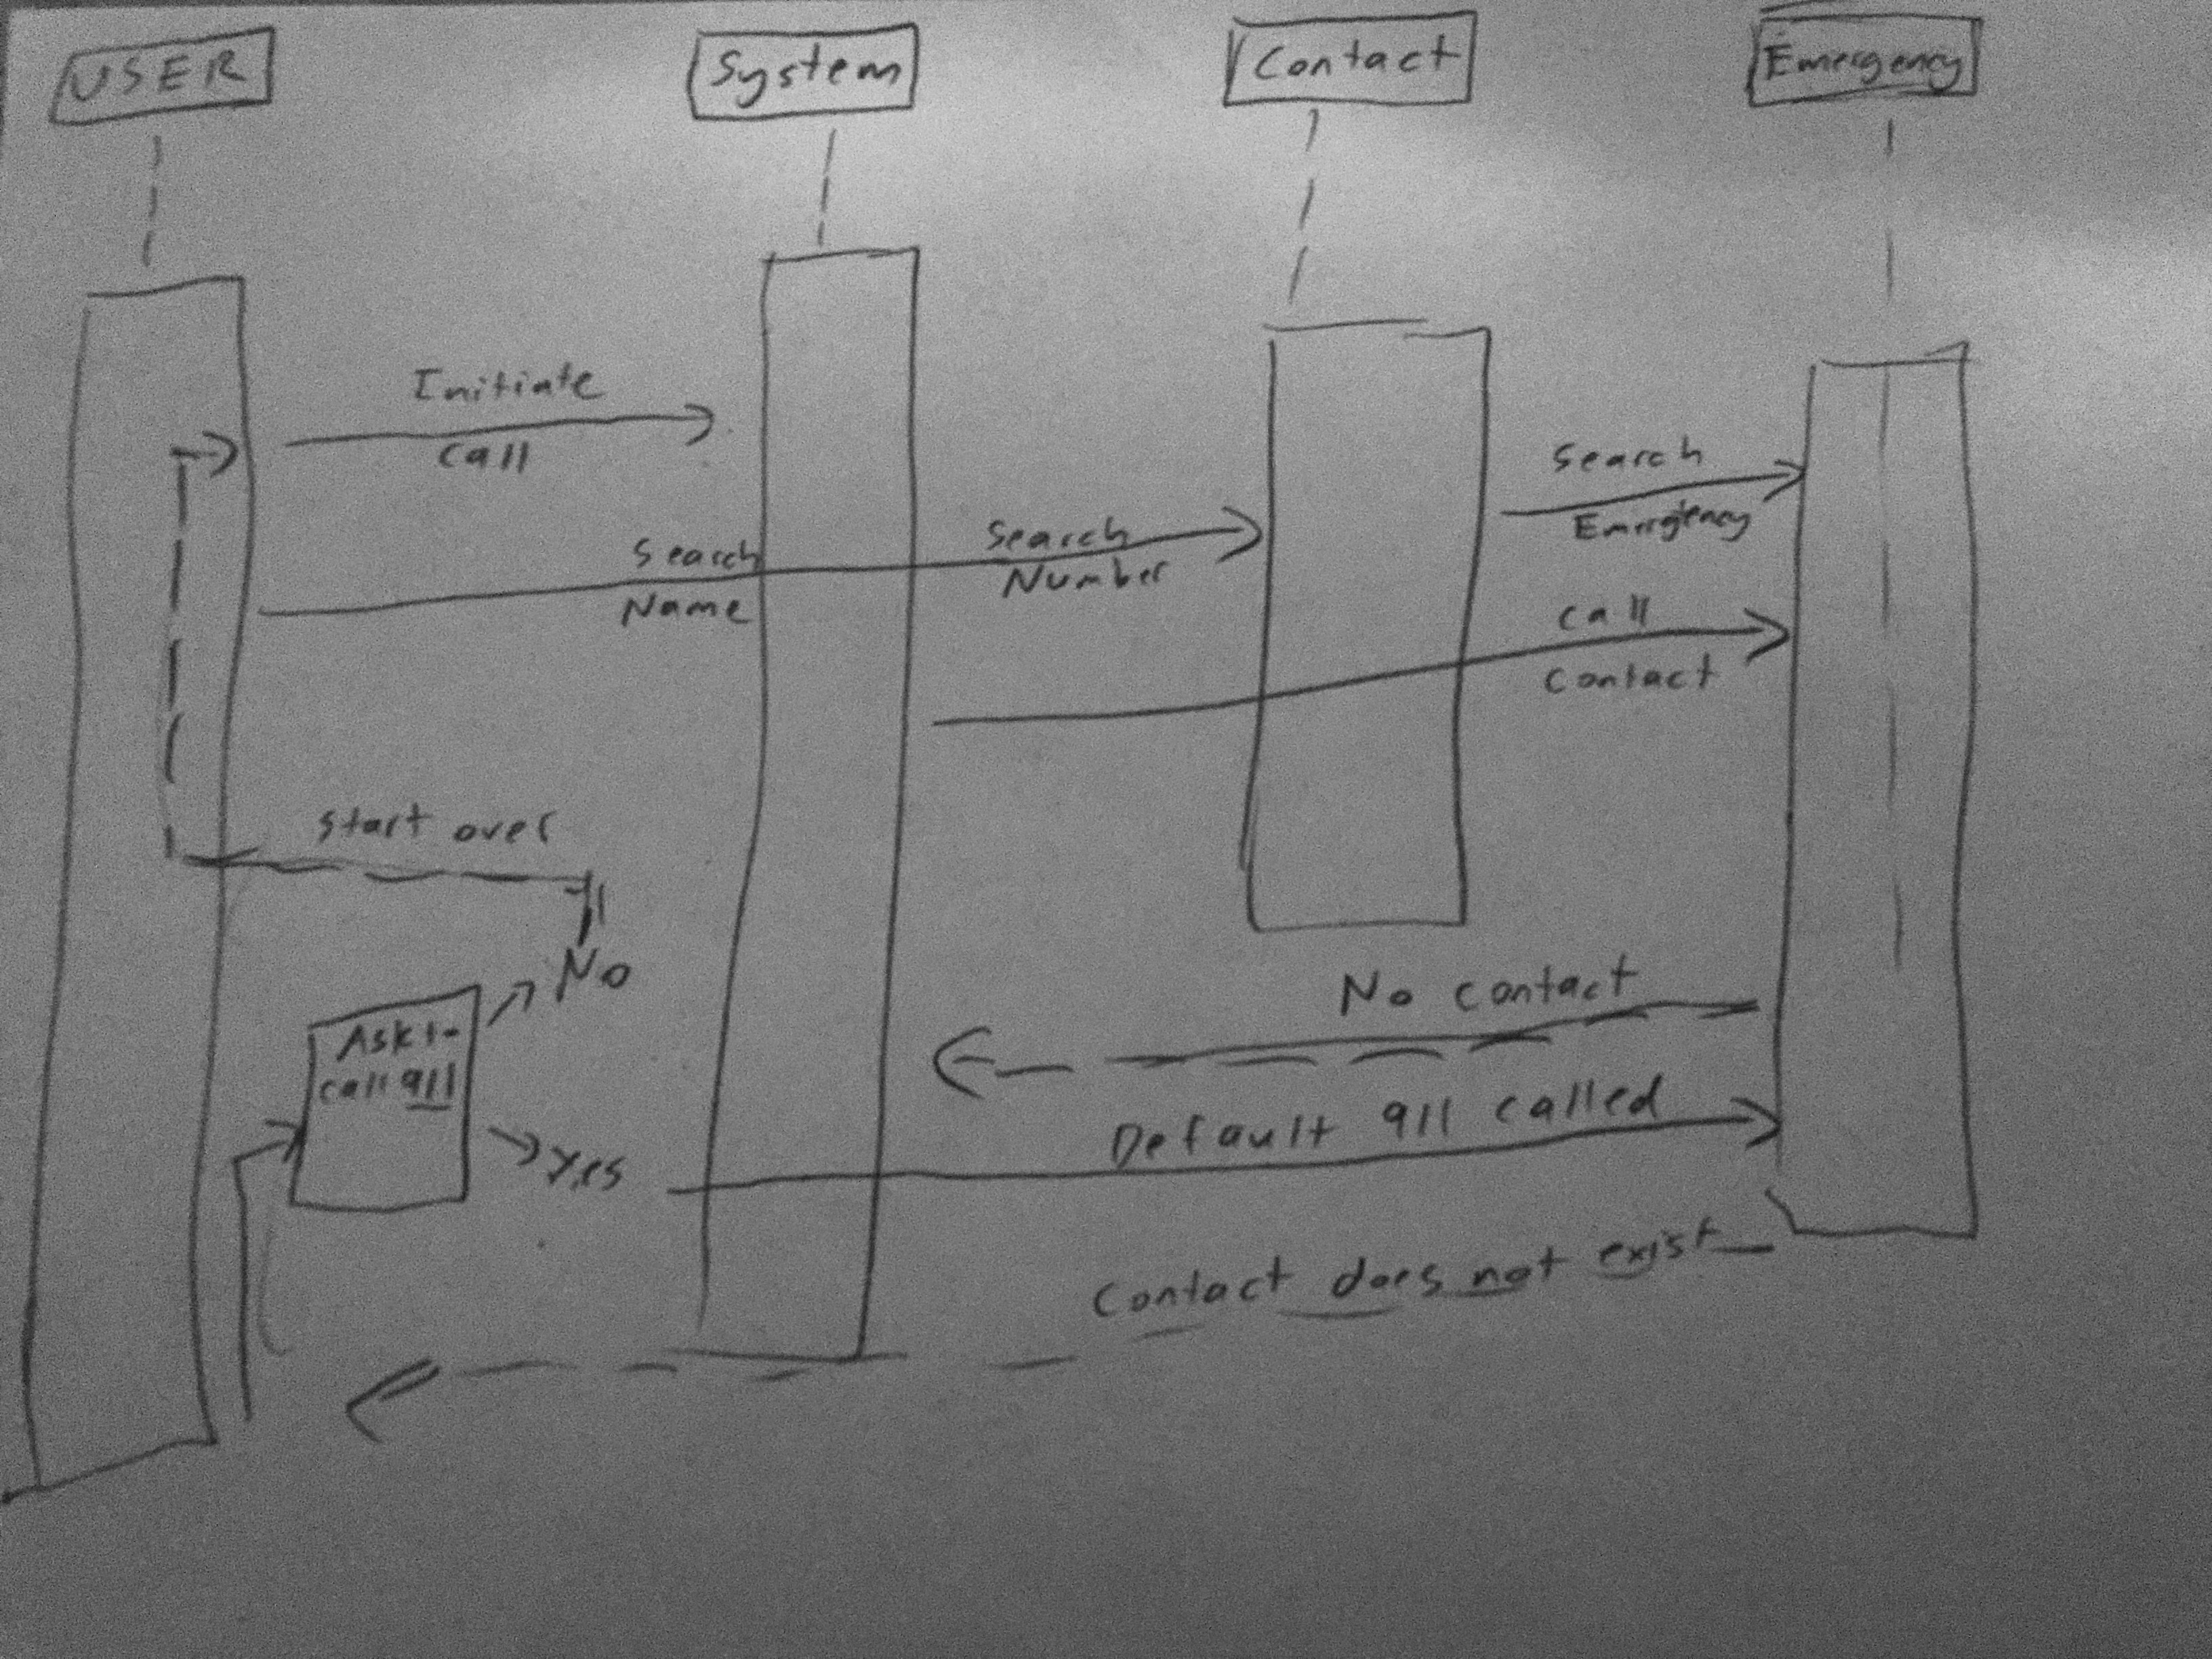 USER
System
Contact
Emergency
Initiate
call
Search
Emergency
Search
Name
Search
Number
call
contact
start over
No
No contact
Ask to
call 911
Default 911 called
Yes
Contact does not exist